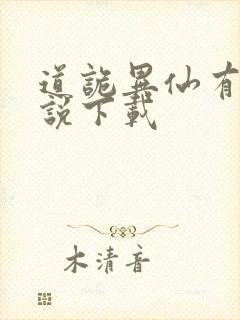 道詭異仙有
說下載
木清音